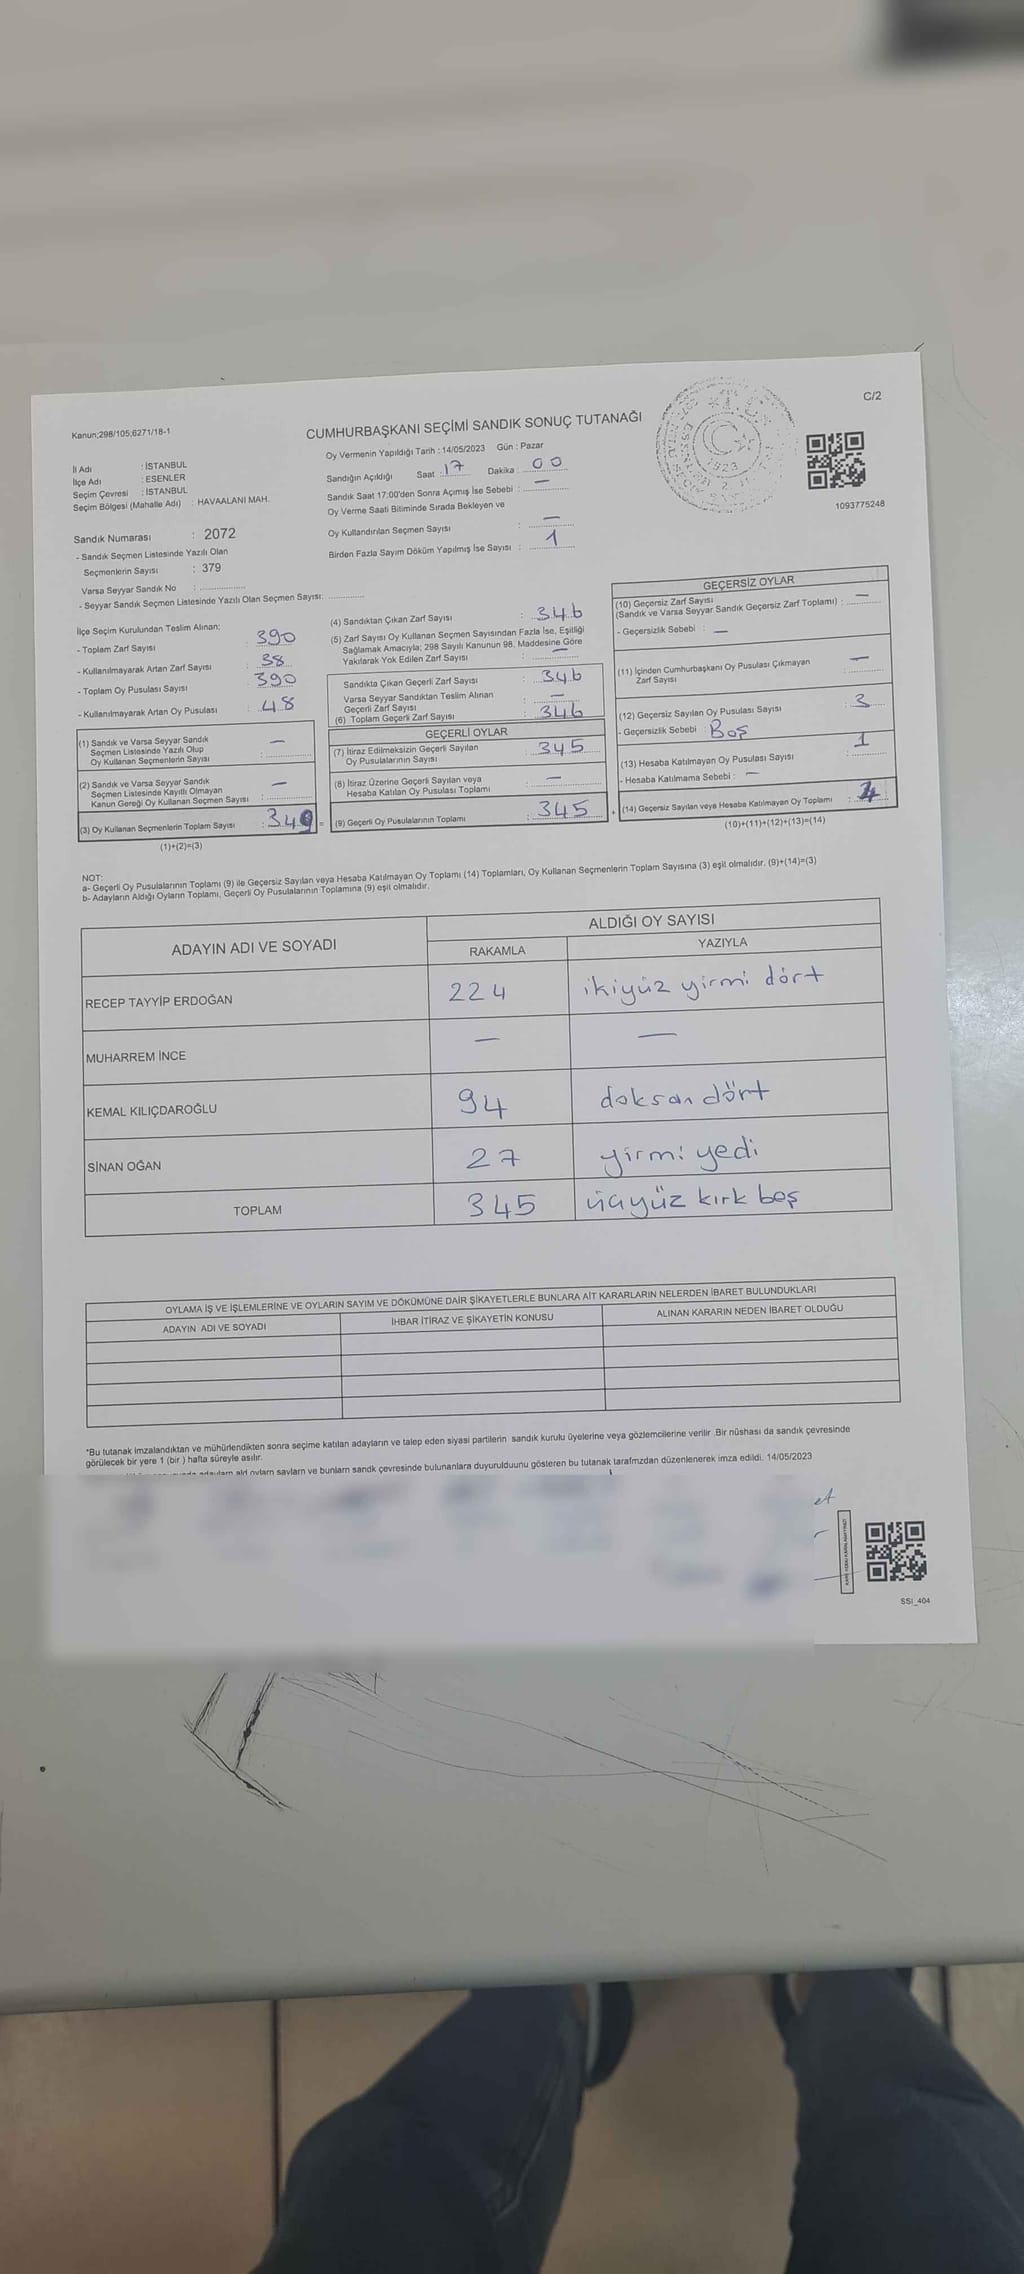 Kanun;298/105;6271/18-1
CUMHURBAŞKANI SEÇİMİ SANDIK SONUÇ TUTANAĞI
C/2
1093775248
İl Adı : İSTANBUL
İlçe Adı : ESENLER
Seçim Çevresi : İSTANBUL
Seçim Bölgesi (Mahalle Adı) : HAVAALANI MAH.
Sandık Numarası : 2072
- Sandık Seçmen Listesinde Yazılı Olan
Seçmenlerin Sayısı : 379
Varsa Seyyar Sandık No :
- Seyyar Sandık Seçmen Listesinde Yazılı Olan Seçmen Sayısı:
Oy Vermenin Yapıldığı Tarih : 14/05/2023 Gün : Pazar
Sandığın Açıldığı Saat : 17 Dakika : 00
Sandık Saat 17:00'den Sonra Açımış İse Sebebi : —
Oy Verme Saati Bitiminde Sırada Bekleyen ve
Oy Kullandırılan Seçmen Sayısı : —
Birden Fazla Sayım Döküm Yapılmış İse Sayısı : 1
İlçe Seçim Kurulundan Teslim Alınan;
- Toplam Zarf Sayısı : 390
- Kullanılmayarak Artan Zarf Sayısı : 38
- Toplam Oy Pusulası Sayısı : 390
- Kullanılmayarak Artan Oy Pusulası : 48
(1) Sandık ve Varsa Seyyar Sandık
Seçmen Listesinde Yazılı Olup
Oy Kullanan Seçmenlerin Sayısı : —
(2) Sandık ve Varsa Seyyar Sandık
Seçmen Listesinde Kayıtlı Olmayan
Kanun Gereği Oy Kullanan Seçmen Sayısı : —
(3) Oy Kullanan Seçmenlerin Toplam Sayısı : 349 =
(1)+(2)=(3)
(4) Sandıktan Çıkan Zarf Sayısı : 346
(5) Zarf Sayısı Oy Kullanan Seçmen Sayısından Fazla İse, Eşitliği
Sağlamak Amacıyla; 298 Sayılı Kanunun 98. Maddesine Göre
Yakılarak Yok Edilen Zarf Sayısı : —
Sandıkta Çıkan Geçerli Zarf Sayısı : 346
Varsa Seyyar Sandıktan Teslim Alınan
Geçerli Zarf Sayısı : —
(6) Toplam Geçerli Zarf Sayısı : 346
GEÇERLİ OYLAR
(7) İtiraz Edilmeksizin Geçerli Sayılan
Oy Pusulalarının Sayısı : 345
(8) İtiraz Üzerine Geçerli Sayılan veya
Hesaba Katılan Oy Pusulası Toplamı : —
(9) Geçerli Oy Pusulalarının Toplamı : 345 +
GEÇERSİZ OYLAR
(10) Geçersiz Zarf Sayısı
(Sandık ve Varsa Seyyar Sandık Geçersiz Zarf Toplamı) : —
- Geçersizlik Sebebi : —
(11) İçinden Cumhurbaşkanı Oy Pusulası Çıkmayan
Zarf Sayısı : —
(12) Geçersiz Sayılan Oy Pusulası Sayısı : 3
- Geçersizlik Sebebi : Boş
(13) Hesaba Katılmayan Oy Pusulası Sayısı : 1
- Hesaba Katılmama Sebebi : —
(14) Geçersiz Sayılan veya Hesaba Katılmayan Oy Toplamı : 4
(10)+(11)+(12)+(13)=(14)
NOT:
a- Geçerli Oy Pusulalarının Toplamı (9) ile Geçersiz Sayılan veya Hesaba Katılmayan Oy Toplamı (14) Toplamları, Oy Kullanan Seçmenlerin Toplam Sayısına (3) eşit olmalıdır. (9)+(14)=(3)
b- Adayların Aldığı Oyların Toplamı, Geçerli Oy Pusulalarının Toplamına (9) eşit olmalıdır.
ADAYIN ADI VE SOYADI
ALDIĞI OY SAYISI
RAKAMLA YAZIYLA
RECEP TAYYİP ERDOĞAN 224 ikiyüz yirmi dört
MUHARREM İNCE — —
KEMAL KILIÇDAROĞLU 94 doksan dört
SİNAN OĞAN 27 yirmi yedi
TOPLAM 345 üçyüz kırk beş
OYLAMA İŞ VE İŞLEMLERİNE VE OYLARIN SAYIM VE DÖKÜMÜNE DAİR ŞİKAYETLERLE BUNLARA AİT KARARLARIN NELERDEN İBARET BULUNDUKLARI
ADAYIN ADI VE SOYADI İHBAR İTİRAZ VE ŞİKAYETİN KONUSU ALINAN KARARIN NEDEN İBARET OLDUĞU
*Bu tutanak imzalandıktan ve mühürlendikten sonra seçime katılan adayların ve talep eden siyasi partilerin sandık kurulu üyelerine veya gözlemcilerine verilir .Bir nüshası da sandık çevresinde
görülecek bir yere 1 (bir ) hafta süreyle asılır.
bulunanlara duyurulduunu gösteren bu tutanak tarafmzdan düzenlenerek imza edildi. 14/05/2023
SSI_404